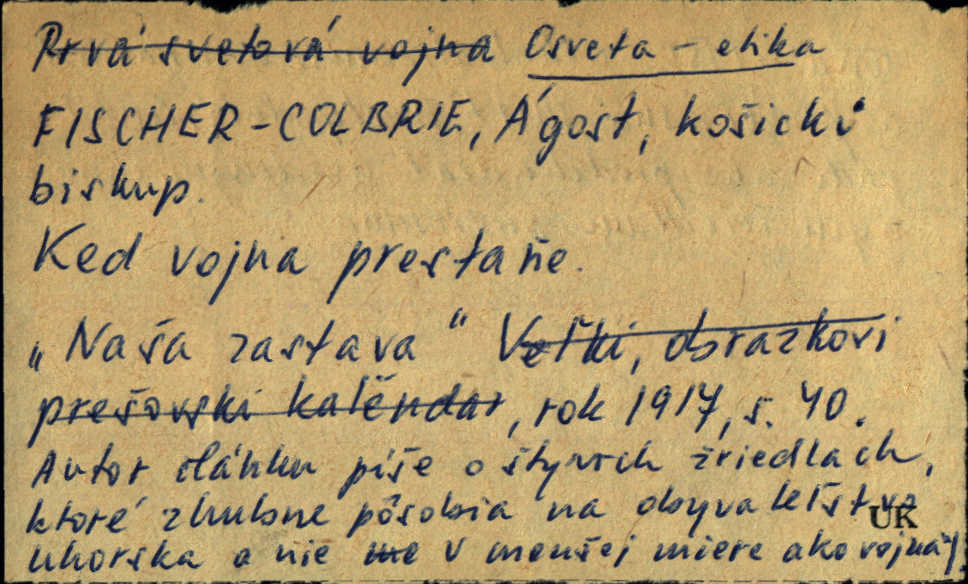 Prvá svetová vojna Osveta - etika
FISCHER-COLBRIE, Ágost, košický
biskup.
Ked vojna prestaňe.
„Naša zastava“ Veľki, obrazkovi
prešovski kalendar, rok 1917, s. 40.
Autor článku píše o štyroch žriedlach,
ktoré zhubne pôsobia na obyvateľstvo
UK
Uhorska a nie me v menšej miere ako vojna